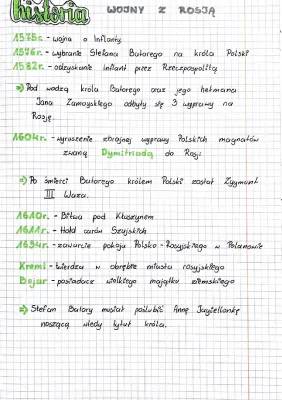 historia WOJNY Z ROSJĄ
1575r. - wojna o Inflanty
1576r. - wybranie Stefana Batorego na króla Polski
1582r. - odzyskanie Inflant przez Rzeczpospolitą
⇒ Pod wodzą króla Batorego oraz jego hetmana
Jana Zamoyskiego odbyły się 3 wyprawy na
Rosję.
1604r. - wyruszenie zbrojnej wyprawy Polskich magnatów
zwaną Dymitriadą do Rosji
⇒ Po śmierci Batorego królem Polski został Zygmunt
III Waza.
1610r. - Bitwa pod Kłuszynem
1611r. - Hołd carów Szujskich
1634r. - zawarcie pokoju Polsko-Rosyjskiego w Polanowie
Kreml - twierdza w obrębie miasta rosyjskiego
Bojar - posiadacz wielkiego majątku ziemskiego
⇒ Stefan Batory musiał poślubić Annę Jagiellonkę
noszącą wtedy tytuł króla.